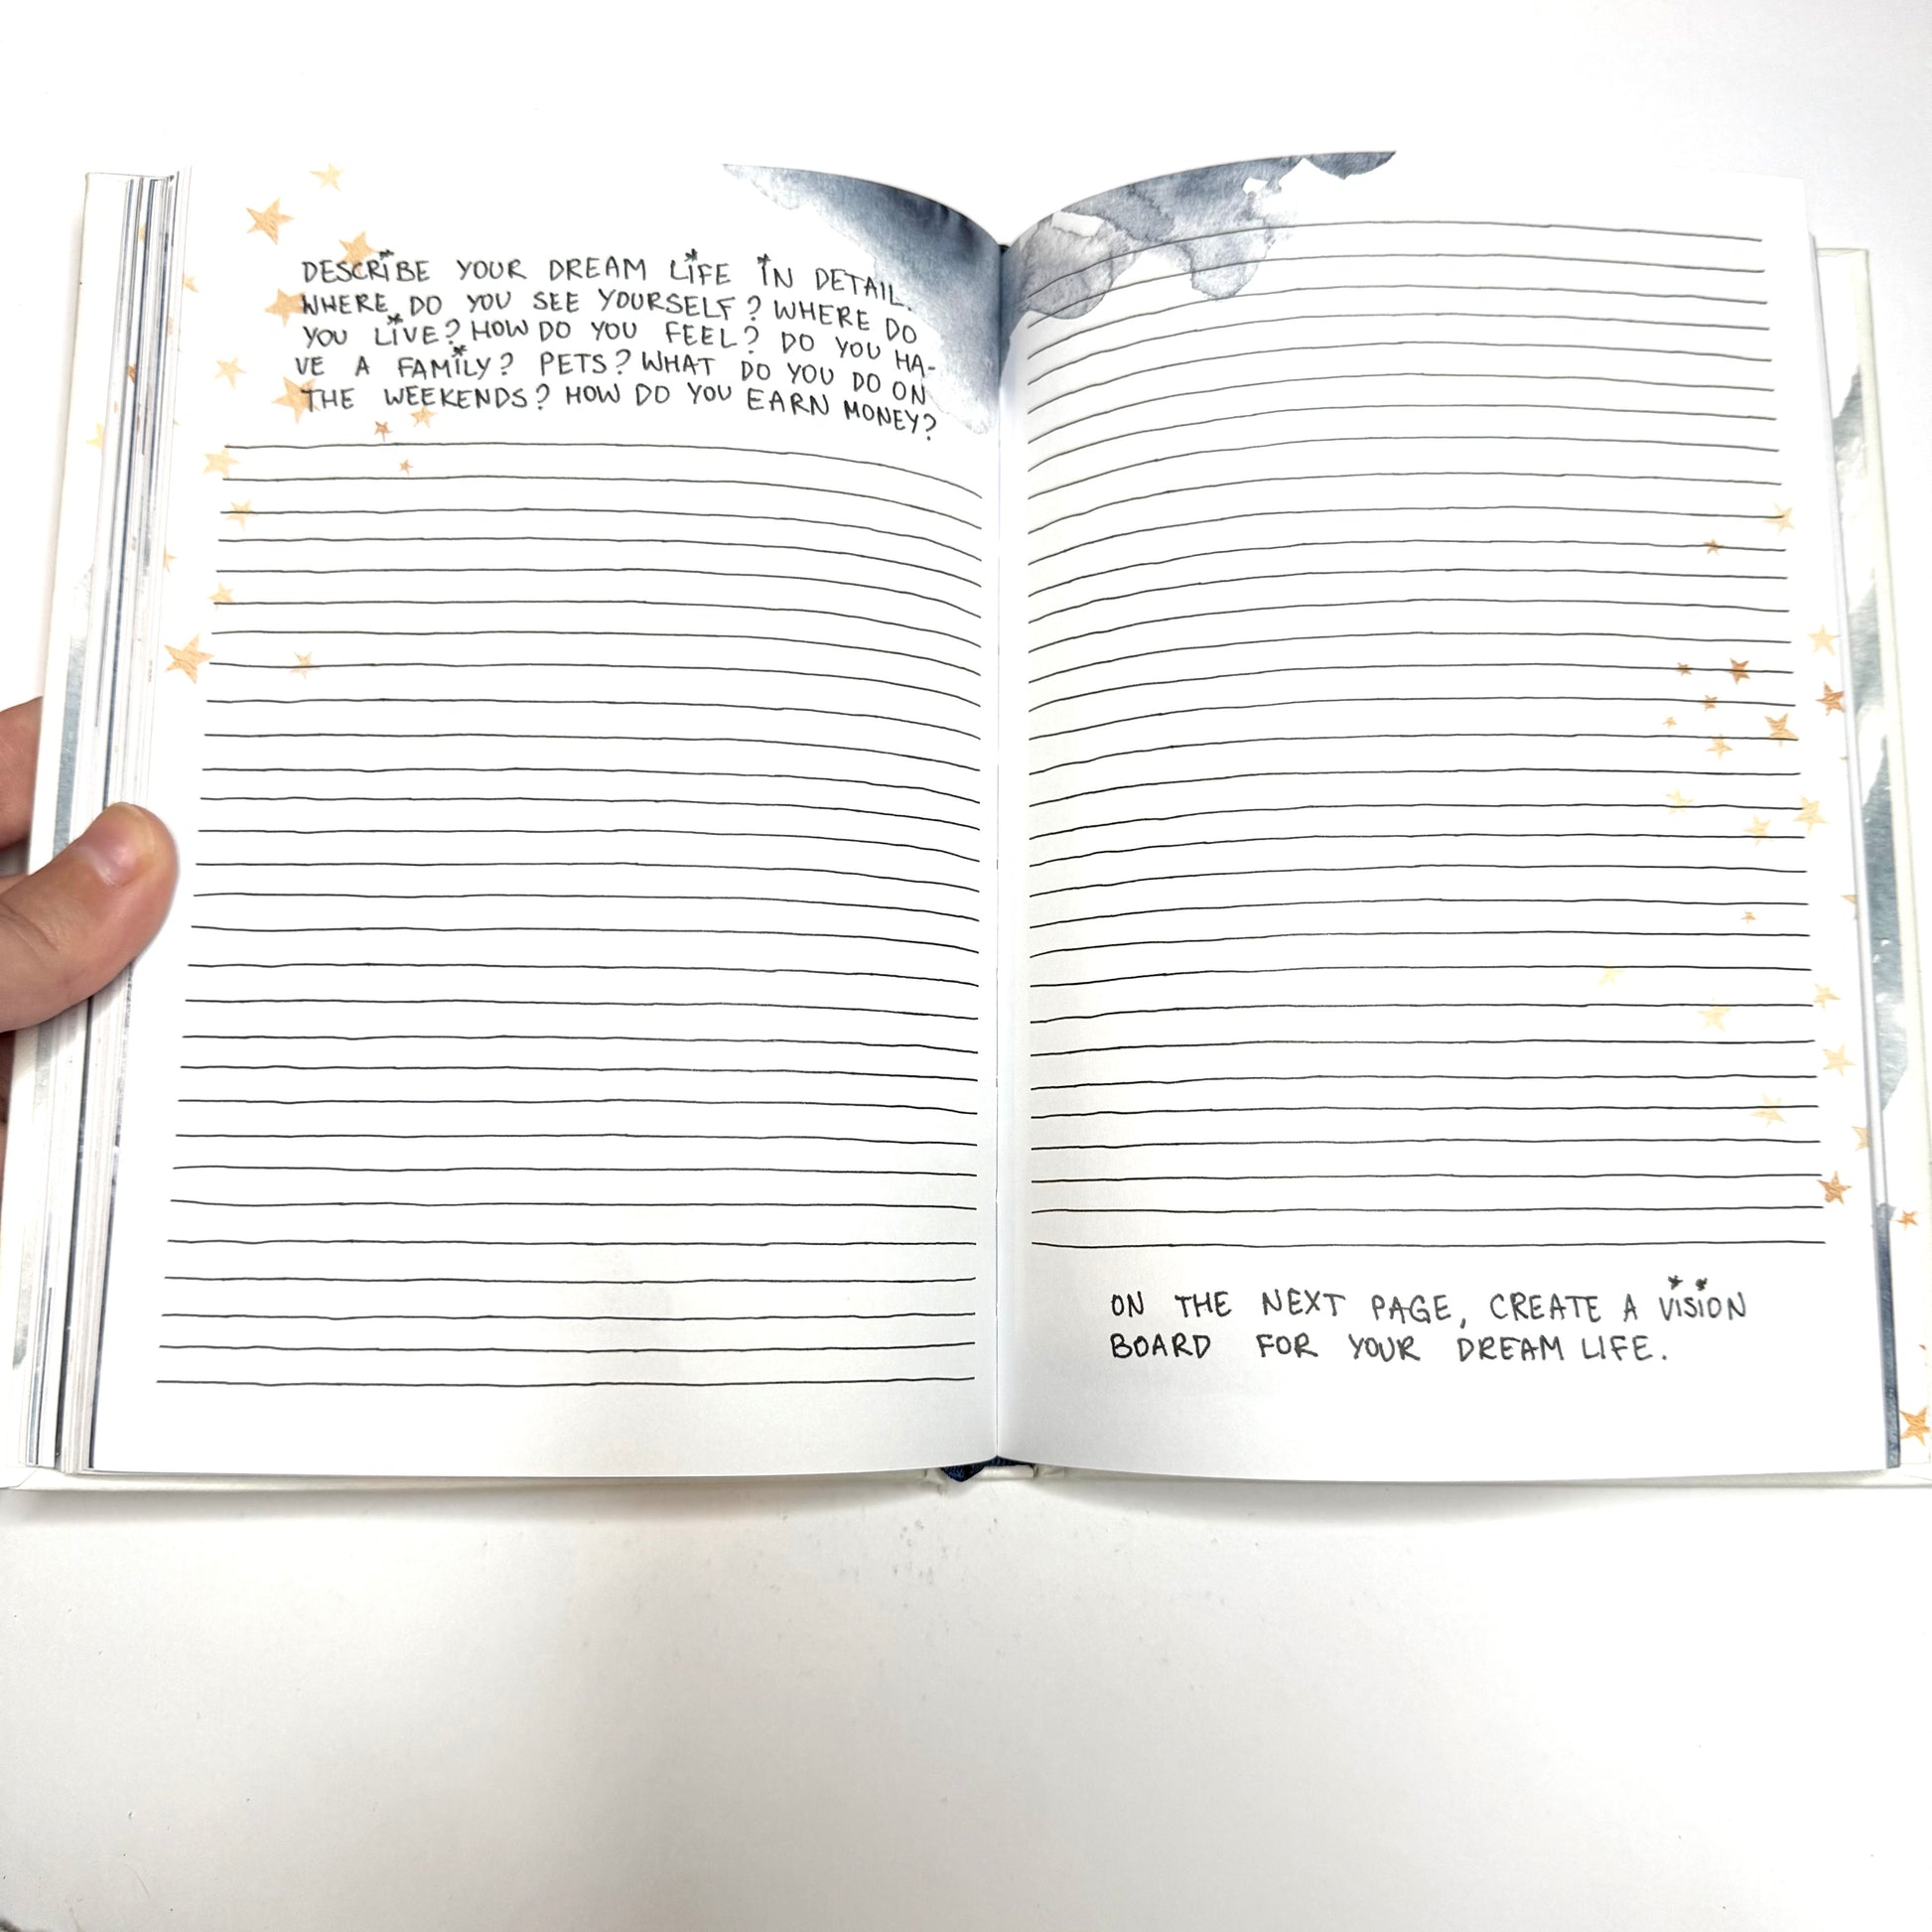 DESCRiBE YOUR DREAM LiFE iN DETAIL.
WHERE DO YOU SEE YOURSELF? WHERE DO
YOU LiVE? HOW DO YOU FEEL? DO YOU HA-
VE A FAMiLY? PETS? WHAT DO YOU DO ON
THE WEEKENDS? HOW DO YOU EARN MONEY?
ON THE NEXT PAGE, CREATE A ViSiON
BOARD FOR YOUR DREAM LIFE.